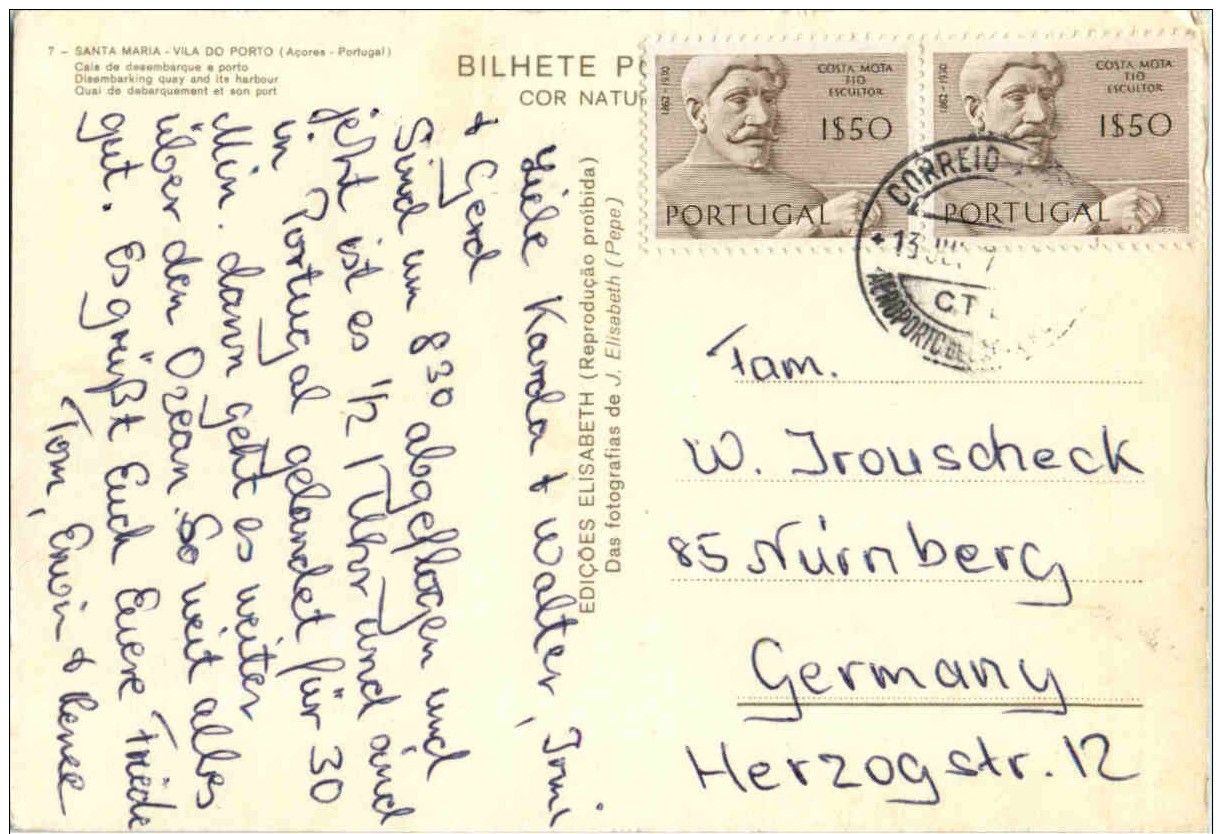 7 – SANTA MARIA - VILA DO PORTO (Açores - Portugal)
Cais de desembarque e porto
Disembarking quay and its harbour
Quai de debarquement et son port
BILHETE PO
COR NATU
COSTA MOTA
TIO
ESCULTOR
1862 – 1930
1$50
PORTUGAL
COSTA MOTA
TIO
ESCULTOR
1862 – 1930
1$50
PORTUGAL
CORREIO
13
CT
AEROPORTO
EDIÇÕES ELISABETH (Reprodução proibida)
Das fotografias de J. Elisabeth (Pepe)
Liebe Karola + Walter, Irmi
+ Gerd
Sind um 830 abgeflogen und
jetzt ist es 1/2 1 Uhr und sind
in Portugal gelandet für 30
Min. dann geht es weiter
über den Ozean. So weit alles
gut. Es grüßt Euch Euere Friedl
Tom, Erwin + Renee
Fam.
W. Trouscheck
85 Nürnberg
Germany
Herzogstr. 12